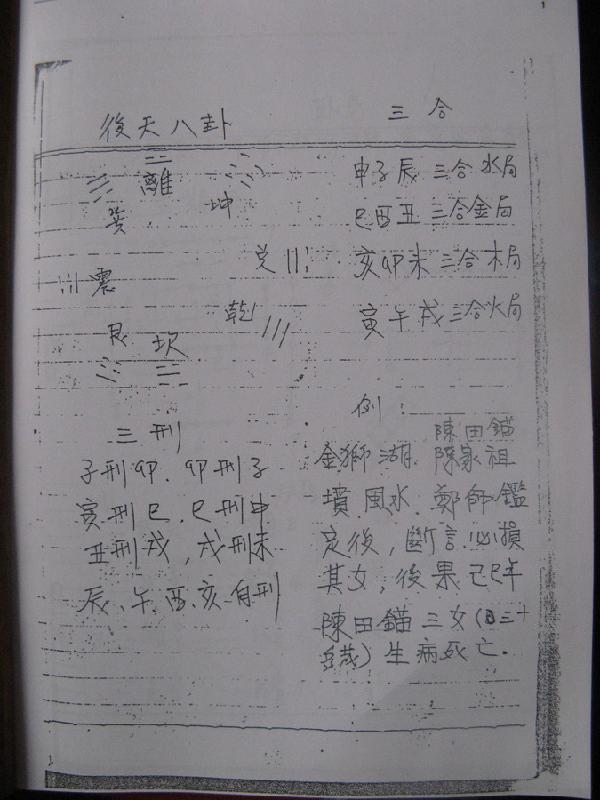 1
後天八卦
三合
離
巽
坤
兌
震
乾
艮
坎
申子辰三合水局
巳酉丑三合金局
亥卯未三合木局
寅午戌三合火局
三刑
子刑卯、卯刑子
寅刑巳、巳刑申
丑刑戌，戌刑未
辰、午、酉、亥自刑
例：
陳田錨
金獅湖 陳家祖
墳風水、鄭師鑑
定後，斷言必損
其女，後果己巳年
陳田錨三女(
歲)生病死亡.